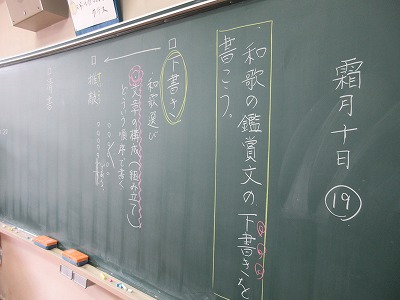 霜月十日 ⑲
和歌の鑑賞文の下書きを
書こう。
□ 下書き
・和歌選び
・文章の構成(組み立て)
どういう順序で書く
□ 推敲
□ 清書